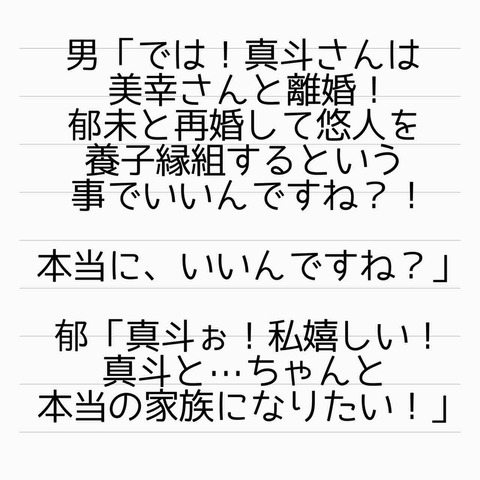 男「では！真斗さんは
美幸さんと離婚！
郁未と再婚して悠人を
養子縁組するという
事でいいんですね？！
本当に、いいんですね？」
郁「真斗ぉ！私嬉しい！
真斗と…ちゃんと
本当の家族になりたい！」